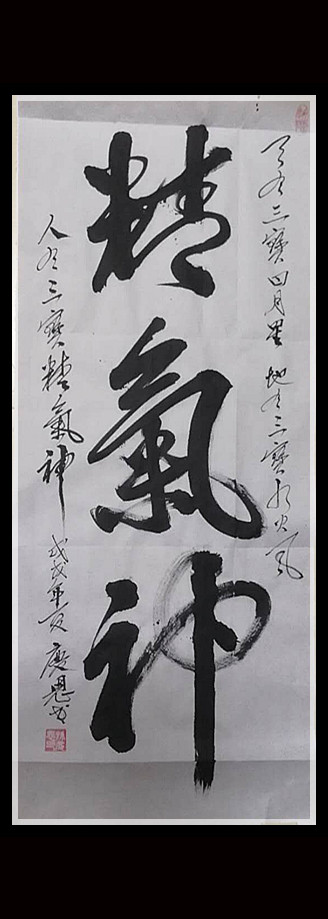 天有三寶日月星 地有三寶水火風
精氣神
人有三寶精氣神 戊戌年夏 慶恩书